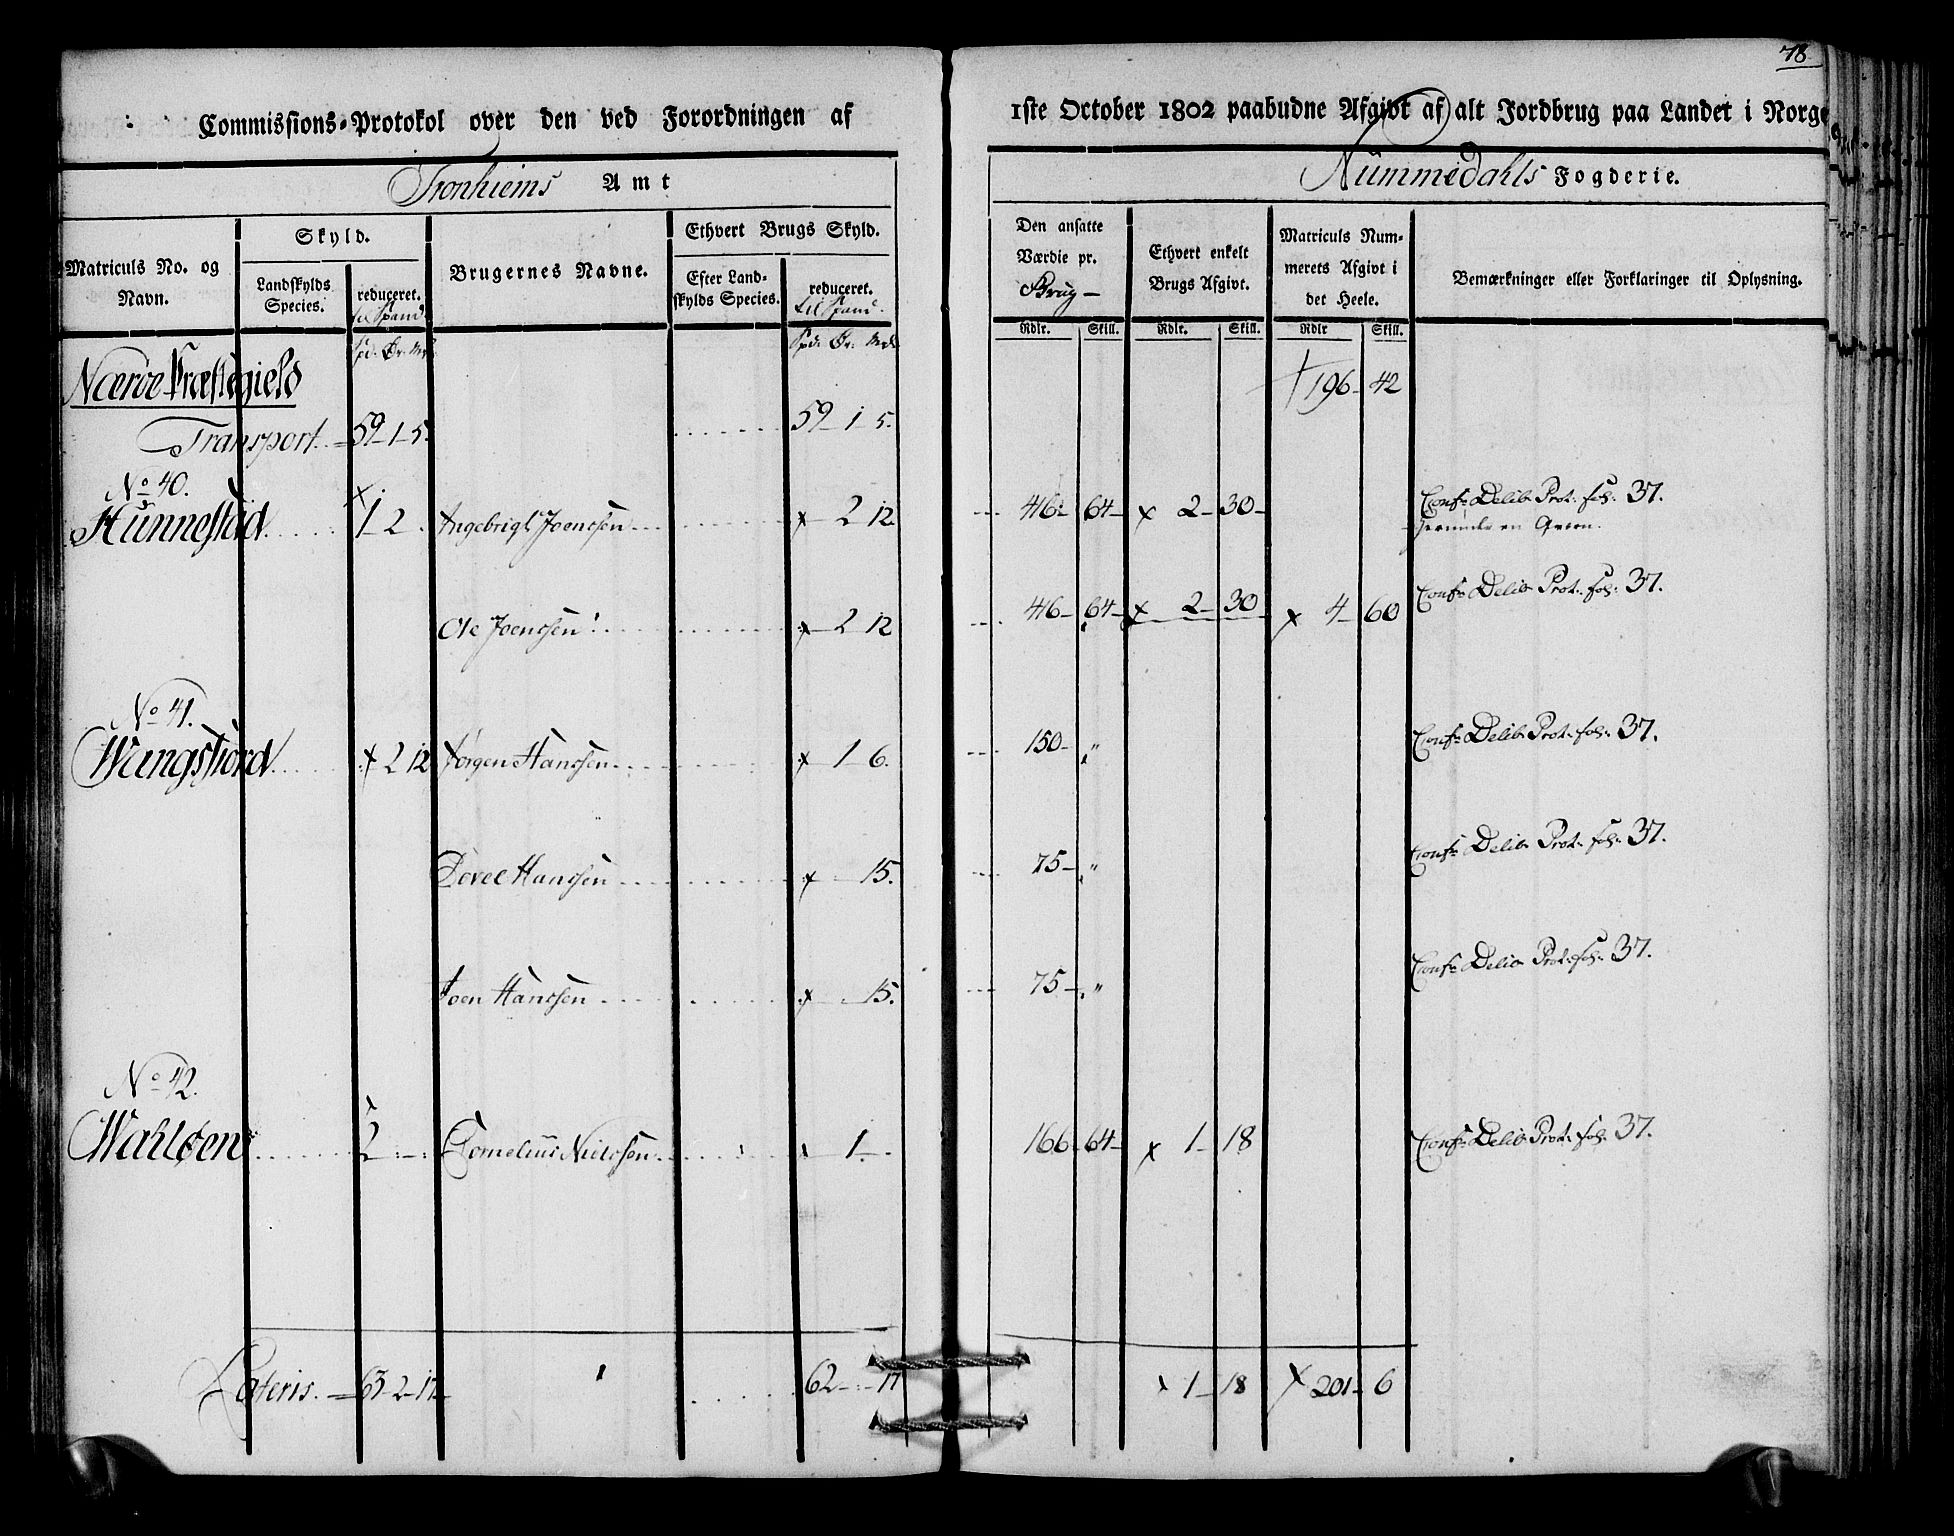 78.
Commissions-Protokol over den ved Forordningen af 1ste October 1802 paabudne Afgivt af alt Jordbrug paa Landet i Norge
Tronhiems Amt
Nummedahls Fogderie.
Matriculs No. og Navn.
Skyld.
Landskylds Species.
reduceret.
til Spand.
Brugernes Navne.
Ethvert Brugs Skyld.
Efter Landskylds Species.
reduceret.
til Spand.
Den ansatte Værdie pr.
Brug-
Ethvert enkelt Brugs Afgivt.
Matriculs Nummerets Afgivt i det Heele.
Bemærkninger eller Forklaringer til Oplysning.
Spd: Ør: Mrk
Spd: Ør: Mrk
Rdlr. Skill. Rdlr. Skill. Rdlr Skill.
Nærøe Præstegield
196 - 42
Transport. 59 - 1 - 5. 59 - 1 - 5.
No 40.
Hunnestad 1 2. Ingebrigt Joenssen x 2 12 46 64 x 2 - 30 Confr Delib. Prot. fol. 37.
en
Ole Joenssen x 2 12 46 - 64 x 2 - 30 x 4 - 60 Confr Delib Prot. fol. 37.
No 41.
Wangsfiord x 2 12 Jørgen Hanssen x 1 6. 150 - " Confr Delib. Prot. fol. 37.
Hanssen x 15. 75 - " Confr Delib. Prot. fol. 37.
Joen Hanssen x 15. 75 - " Confr Delib. Prot. fol. 37.
No 42.
Wahløen 2 Cornelius Nielssen x 1. 166 - 64 x 1 - 18 Confr Delib. Prot. fol. 37.
Lateris. 63 - 2 - 17 62 - 17 x 1 - 18 x 201 - 6